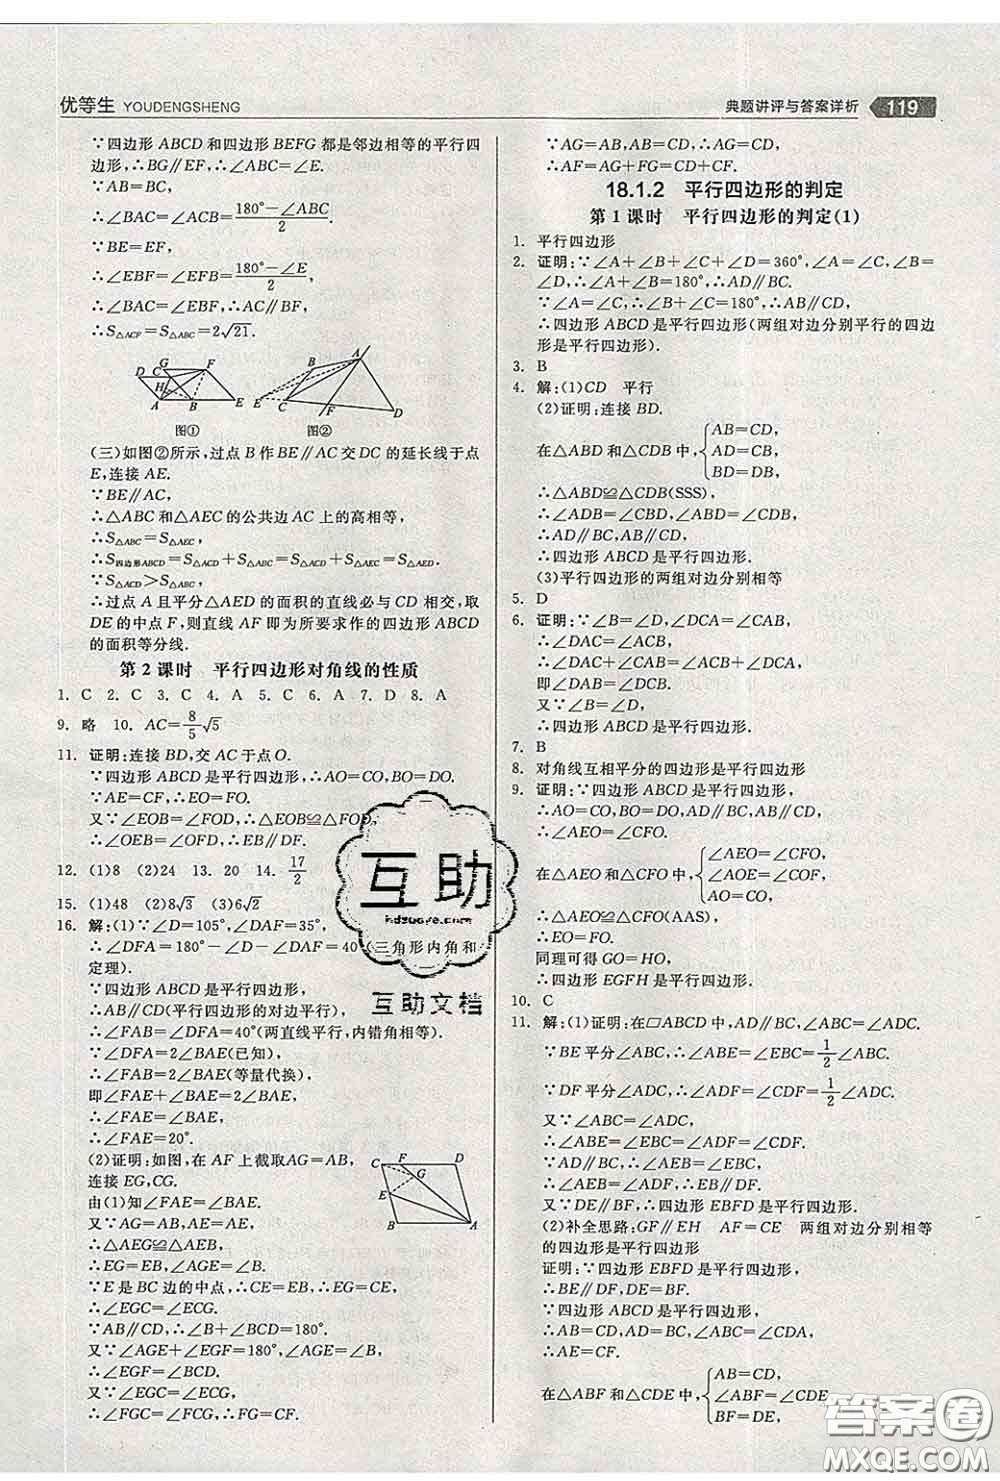 优等生 YOUDENGSHENG
典题讲评与答案详析 119
∵四边形 ABCD 和四边形 BEFG 都是邻边相等的平行四
边形,∴BG∥EF,∴∠ABC=∠E.
∵AB=BC,
∴∠BAC=∠ACB=(180°-∠ABC)/2.
∵BE=EF,
∴∠EBF=∠EFB=(180°-∠E)/2,
∴∠BAC=∠EBF,∴AC∥BF,
∴S△ACF=S△ABC=2√21.
D C G F
A B E
图①
B A
E C F D
图②
(三)如图②所示,过点 B 作BE∥AC 交 DC 的延长线于点
E,连接 AE.
∵BE∥AC,
∴△ABC 和△AEC 的公共边 AC 上的高相等,
∴S△ABC=S△AEC,
∴S四边形ABCD=S△ACD+S△ABC=S△ACD+S△AEC=S△AED.
∵S△ACD>S△ABC,
∴过点 A 且平分△AED 的面积的直线必与 CD 相交,取
DE 的中点 F,则直线 AF 即为所要求作的四边形 ABCD
的面积等分线.
第 2 课时 平行四边形对角线的性质
1. C 2. C 3. C 4. A 5. C 6. A 7. D 8. A
9. 略 10. AC=8/5√5
11. 证明:连接 BD,交 AC 于点 O.
∵四边形 ABCD 是平行四边形,∴AO=CO,BO=DO.
∵AE=CF,∴EO=FO.
又∵∠EOB=∠FOD,∴△EOB≌△FOD,
∴∠OEB=∠OFD,∴EB∥DF.
12. (1)8 (2)24 13. 20 14. 17/2
15. (1)48 (2)8√3 (3)6√2
16. 解:(1)∵∠D=105°,∠DAF=35°,
∴∠DFA=180°-∠D-∠DAF=40°(三角形内角和
定理).
∵四边形 ABCD 是平行四边形,
∴AB∥CD(平行四边形的对边平行),
∴∠FAB=∠DFA=40°(两直线平行,内错角相等).
∵∠DFA=2∠BAE(已知),
∴∠FAB=2∠BAE(等量代换),
即∠FAE+∠BAE=2∠BAE,
∴∠FAE=∠BAE,
∴∠FAE=20°.
(2)证明:如图,在 AF 上截取AG=AB,
连接 EG,CG.
由(1)知∠FAE=∠BAE.
又∵AG=AB,AE=AE,
∴△AEG≌△AEB,
∴EG=EB,∠AGE=∠B.
∵E 是 BC 边的中点,∴CE=EB,∴EG=CE,
∴∠EGC=∠ECG.
∵AB∥CD,∴∠B+∠BCD=180°.
又∵∠AGE+∠EGF=180°,∠AGE=∠B,
∴∠EGF=∠BCD.
又∵∠EGC=∠ECG,
∴∠FGC=∠FCG,∴FG=FC.
C F D
G
E
B A
∵AG=AB,AB=CD,∴AG=CD,
∴AF=AG+FG=CD+CF.
18.1.2 平行四边形的判定
第 1 课时 平行四边形的判定(1)
1. 平行四边形
2. 证明:∵∠A+∠B+∠C+∠D=360°,∠A=∠C,∠B=
∠D,∴∠A+∠B=180°,∴AD∥BC.
∵∠A=∠C,∴∠B+∠C=180°,∴AB∥CD,
∴四边形 ABCD 是平行四边形(两组对边分别平行的四边
形是平行四边形).
3. B
4. 解:(1)CD 平行
(2)证明:连接 BD.
在△ABD 和△CDB 中,{AB=CD,
AD=CB,
BD=DB,
∴△ABD≌△CDB(SSS),
∴∠ADB=∠CBD,∠ABD=∠CDB,
∴AD∥BC,AB∥CD,
∴四边形 ABCD 是平行四边形.
(3)平行四边形的两组对边分别相等
5. D
6. 证明:∵∠B=∠D,∠1=∠2,
∴∠DAC=∠ACB,
∴∠DAC+∠2=∠ACB+∠1,
即∠DAB=∠DCB.
又∵∠B=∠D,
∴四边形 ABCD 是平行四边形.
7. B
8. 对角线互相平分的四边形是平行四边形
9. 证明:∵四边形 ABCD 是平行四边形,
∴AO=CO,BO=DO,AD∥BC,AB∥CD,
∴∠AEO=∠CFO.
在△AEO 和△CFO 中,{∠AEO=∠CFO,
∠AOE=∠COF,
AO=CO,
∴△AEO≌△CFO(AAS),
∴EO=FO.
同理可得 GO=HO,
∴四边形 EGFH 是平行四边形.
10. C
11. 解:(1)证明:在▱ABCD 中,AD∥BC,∠ABC=∠ADC.
∵BE 平分∠ABC,∴∠ABE=∠EBC=1/2∠ABC.
∵DF 平分∠ADC,∴∠ADF=∠CDF=1/2∠ADC.
又∵∠ABC=∠ADC,
∴∠ABE=∠EBC=∠ADF=∠CDF.
∵AD∥BC,∴∠AEB=∠EBC,
∴∠AEB=∠ADF,∴EB∥DF.
又∵DE∥BF,∴四边形 EBFD 是平行四边形.
(2)补全思路:GF∥EH AF=CE 两组对边分别相等
的四边形是平行四边形
证明:∵四边形 EBFD 是平行四边形,
∴BE∥DF,DE=BF.
∵四边形 ABCD 是平行四边形,
∴AB=CD,∠ABC=∠ADC,AD=BC,AD∥BC,
∴AE=CF.
在△ABF 和△CDE 中,{AB=CD,
∠ABF=∠CDE,
BF=DE,
互助
hdzuoye.com
互助文档
答案圈
MXQE.COM